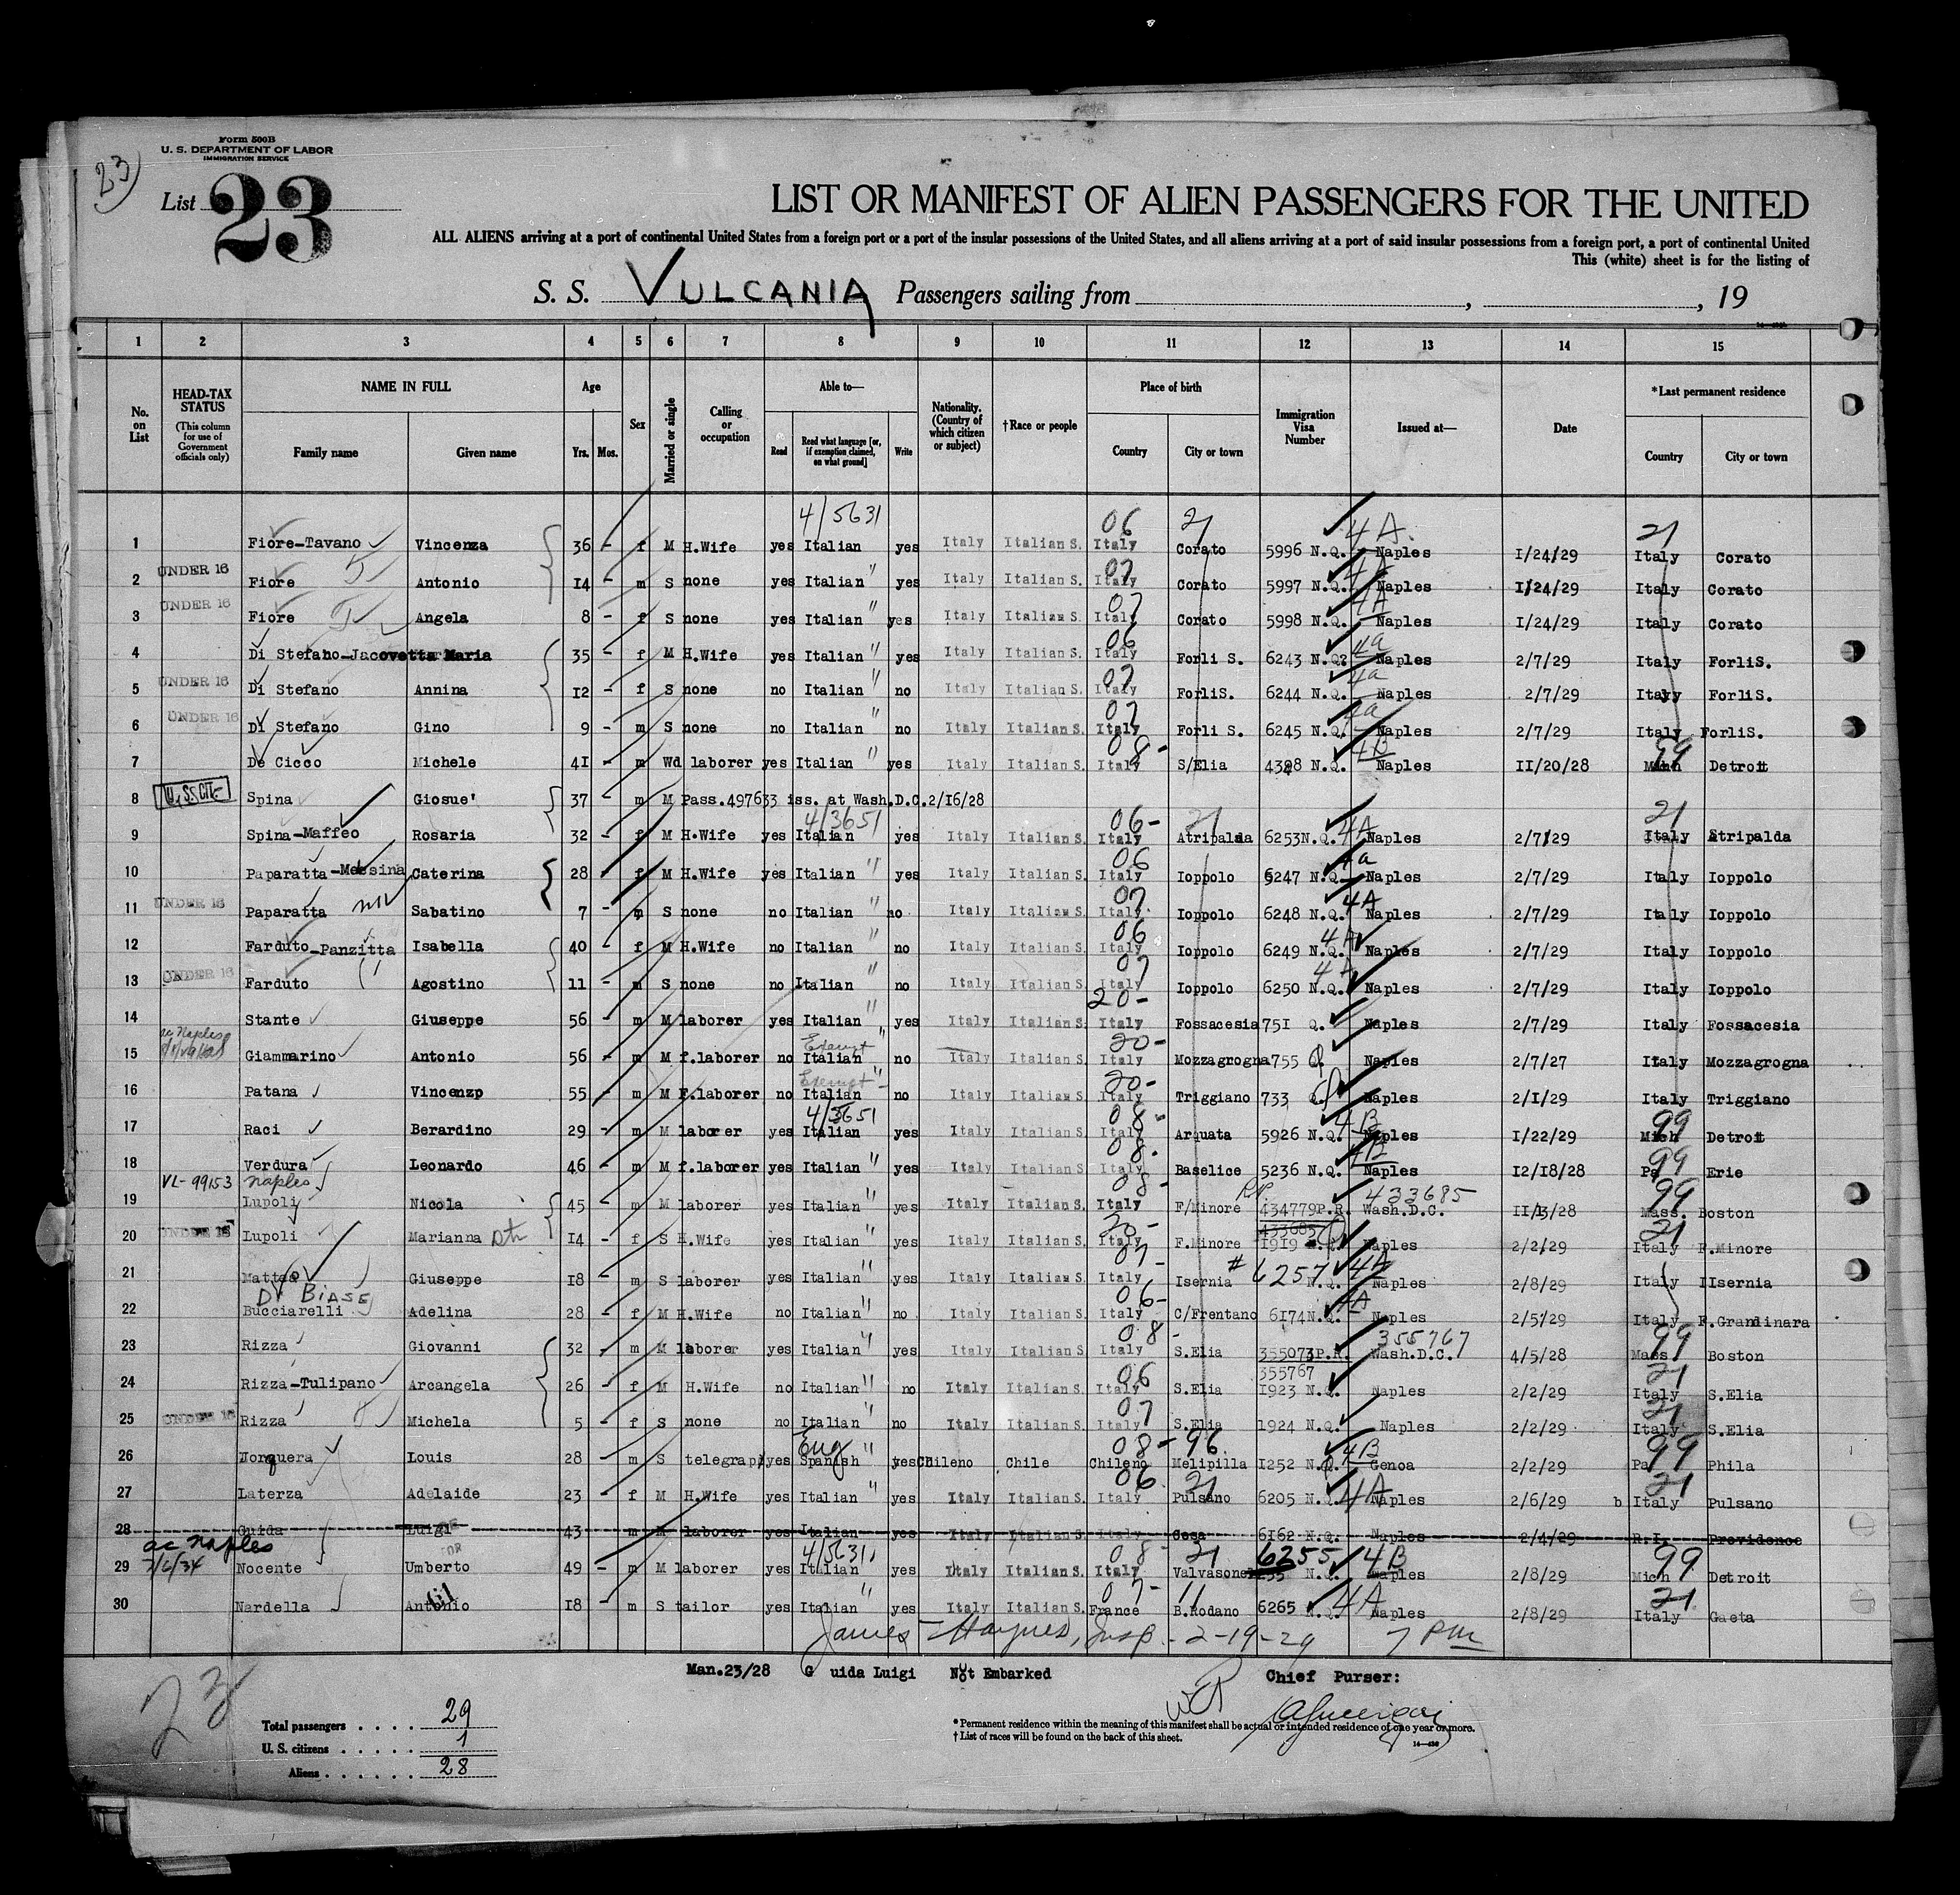 Form 500B
U. S. DEPARTMENT OF LABOR
IMMIGRATION SERVICE
23
List 23
LIST OR MANIFEST OF ALIEN PASSENGERS FOR THE UNITED
ALL ALIENS arriving at a port of continental United States from a foreign port or a port of the insular possessions of the United States, and all aliens arriving at a port of said insular possessions from a foreign port, a port of continental United
This (white) sheet is for the listing of
S. S. VULCANIA Passengers sailing from , , 19
1 2 3 4 5 6 7 8 9 10 11 12 13 14 15
No. on List HEAD-TAX STATUS (This column for use of Government officials only) NAME IN FULL Family name Given name Age Yrs. Mos. Sex Married or single Calling or occupation Able to— Read Read what language [or, if exemption claimed, on what ground] Write Nationality. (Country of which citizen or subject) †Race or people Place of birth Country City or town Immigration Visa Number Issued at— Date *Last permanent residence Country City or town
4/5631 06 21 4A. 21
1 Fiore-Tavano Vincenza 36 - f M H.Wife yes Italian yes Italy Italian S. Italy Corato 5996 N.Q. Naples 1/24/29 Italy Corato
2 UNDER 16 Fiore Antonio 14 - m S none yes Italian " yes Italy Italian S. 07 Italy Corato 5997 N.Q. 4A Naples 1/24/29 Italy Corato
3 UNDER 16 Fiore Angela 8 - f S none yes Italian " yes Italy Italian S. 07 Italy Corato 5998 N.Q. 4A Naples 1/24/29 Italy Corato
4 Di Stefano-Jacovetta Maria 35 - f M H.Wife yes Italian " yes Italy Italian S. 06 Italy Forli S. 6243 N.Q. 4a Naples 2/7/29 Italy ForliS.
5 UNDER 16 Di Stefano Annina 12 - f S none no Italian " no Italy Italian S. 07 Italy ForliS. 6244 N.Q. 4a Naples 2/7/29 Itayy ForliS.
6 UNDER 16 Di Stefano Gino 9 - m S none no Italian " no Italy Italian S. 07 Italy Forli S. 6245 N.Q. 4a Naples 2/7/29 Italy ForliS.
7 De Cicco Michele 41 - m Wd laborer yes Italian " yes Italy Italian S. 08- Italy S/Elia 4398 N.Q. 4B Naples 11/20/28 99 Mich Detroit
8 U.S. CIT- Spina Giosue' 37 - m M Pass.497633 iss. at Wash.D.C.2/16/28
9 Spina-Maffeo Rosaria 32 - f M H.Wife yes 4/3651 Italian yes Italy Italian S. 06- Italy 21 Atripalda 6253N.Q. 4A Naples 2/7/29 21 Italy Atripalda
10 Paparatta-Messina Caterina 28 f M H.Wife yes Italian " yes Italy Italian S. 06 Italy Ioppolo 6247 N.Q. 4a Naples 2/7/29 Italy Ioppolo
11 UNDER 16 Paparatta Sabatino 7 - m S none no Italian " no Italy Italian S. 07 Italy Ioppolo 6248 N.Q. 4A Naples 2/7/29 Italy Ioppolo
12 Farduto-Panzitta Isabella 40 - f M H.Wife no Italian " no Italy Italian S. 06 Italy Ioppolo 6249 N.Q. 4A Naples 2/7/29 Italy Ioppolo
13 UNDER 16 Farduto Agostino 11 - m S none no Italian " no Italy Italian S. 07 Italy Ioppolo 6250 N.Q. 4A Naples 2/7/29 Italy Ioppolo
14 Stante Giuseppe 56 - m M laborer yes Italian " yes Italy Italian S. 20- Italy Fossacesia 751 Q. Naples 2/7/29 Italy Fossacesia
15 Giammarino Antonio 56 - m M f.laborer no Exempt Italian " no Italy Italian S. 20- Italy Mozzagrogna 755 Q Naples 2/7/27 Italy Mozzagrogna
16 Patana Vincenzp 55 - m M F.laborer no Exempt Italian " no Italy Italian S. 20- Italy Triggiano 733 Q Naples 2/1/29 Italy Triggiano
17 Raci Berardino 29 - m M laborer yes 4/3651 Italian yes Italy Italian S. 08- Italy Arquata 5926 N.Q. 4B Naples 1/22/29 99 Mich Detroit
18 Verdura Leonardo 46 - m M f.laborer yes Italian " yes Italy Italian S. 08- Italy Baselice 5236 N.Q. 4B Naples 12/18/28 99 Pa Erie
VL-99153 Naples
19 Lupoli Nicola 45 - m M laborer yes Italian " yes Italy Italian S. 08- Italy F/Minore 434779P.R. 433685 Wash.D.C. 433685 11/13/28 99 Mass. Boston
20 UNDER 16 Lupoli Marianna 14 - f S H.Wife yes Italian " yes Italy Italian S. 20- Italy F.Minore 1919 Naples 2/2/29 21 Italy F.Minore
21 Matteo Giuseppe 18 - m S laborer yes Italian " yes Italy Italian S. 07- Italy Isernia # 6257 N.Q. 4A Naples 2/8/29 Italy IIsernia
Di BIASE
22 Bucciarelli Adelina 28 - f M H.Wife no Italian " no Italy Italian S. 06- Italy C/Frentano 6174N.Q. 4A Naples 2/5/29 Italy F.Grandinara
23 Rizza Giovanni 32 - m M laborer yes Italian " yes Italy Italian S. 08- Italy S.Elia 355073P.R. 355767 Wash.D.C. 355767 4/5/28 99 Mass Boston
24 Rizza-Tulipano Arcangela 26 - f M H.Wife no Italian " no Italy Italian S. 06 Italy S.Elia 1923 N.Q. Naples 2/2/29 21 Italy S.Elia
25 UNDER 16 Rizza Michela 5 - f S none no Italian " no Italy Italian S. 07 Italy S.Elia 1924 N.Q. Naples 2/2/29 21 Italy S.Elia
26 Jorquera Louis 28 - m S telegrap yes Eng " Spanish yes Chileno Chile 08- Chileno 96 Melipilla 1252 N.Q. 4B Genoa 2/2/29 99 Pa Phila
27 Laterza Adelaide 23 - f M H.Wife yes Italian " yes Italy Italian S. 06 Italy 21 Pulsano 6205 N.Q. 4A Naples 2/6/29 b 21 Italy Pulsano
28 Guida Luigi 43 m M laborer yes Italian yes Italy Italian S. Italy Cesa 6162 N.Q. Naples 2/4/29 R.I. Providence
ac Naples
29 7/6/34 Nocente Umberto 49 - m M laborer yes 4/5631 Italian yes Italy Italian S. 08- Italy 21 Valvasone 6255 N.Q. 4B Naples 2/8/29 99 Mich Detroit
30 Nardella Antonio 18 - m S tailor yes Italian " yes Italy Italian S. 07- France 11 B.Rodano 6265 N.Q. 4A Naples 2/8/29 21 Italy Gaeta
James Haynes, Insp. - 2-19-29 7 PM
Man.23/28 G uida Luigi Not Embarked Chief Purser:
23
Total passengers . . . . 29
U. S. citizens . . . . . 1
Aliens . . . . . . 28
* Permanent residence within the meaning of this manifest shall be actual or intended residence of one year or more.
† List of races will be found on the back of this sheet.